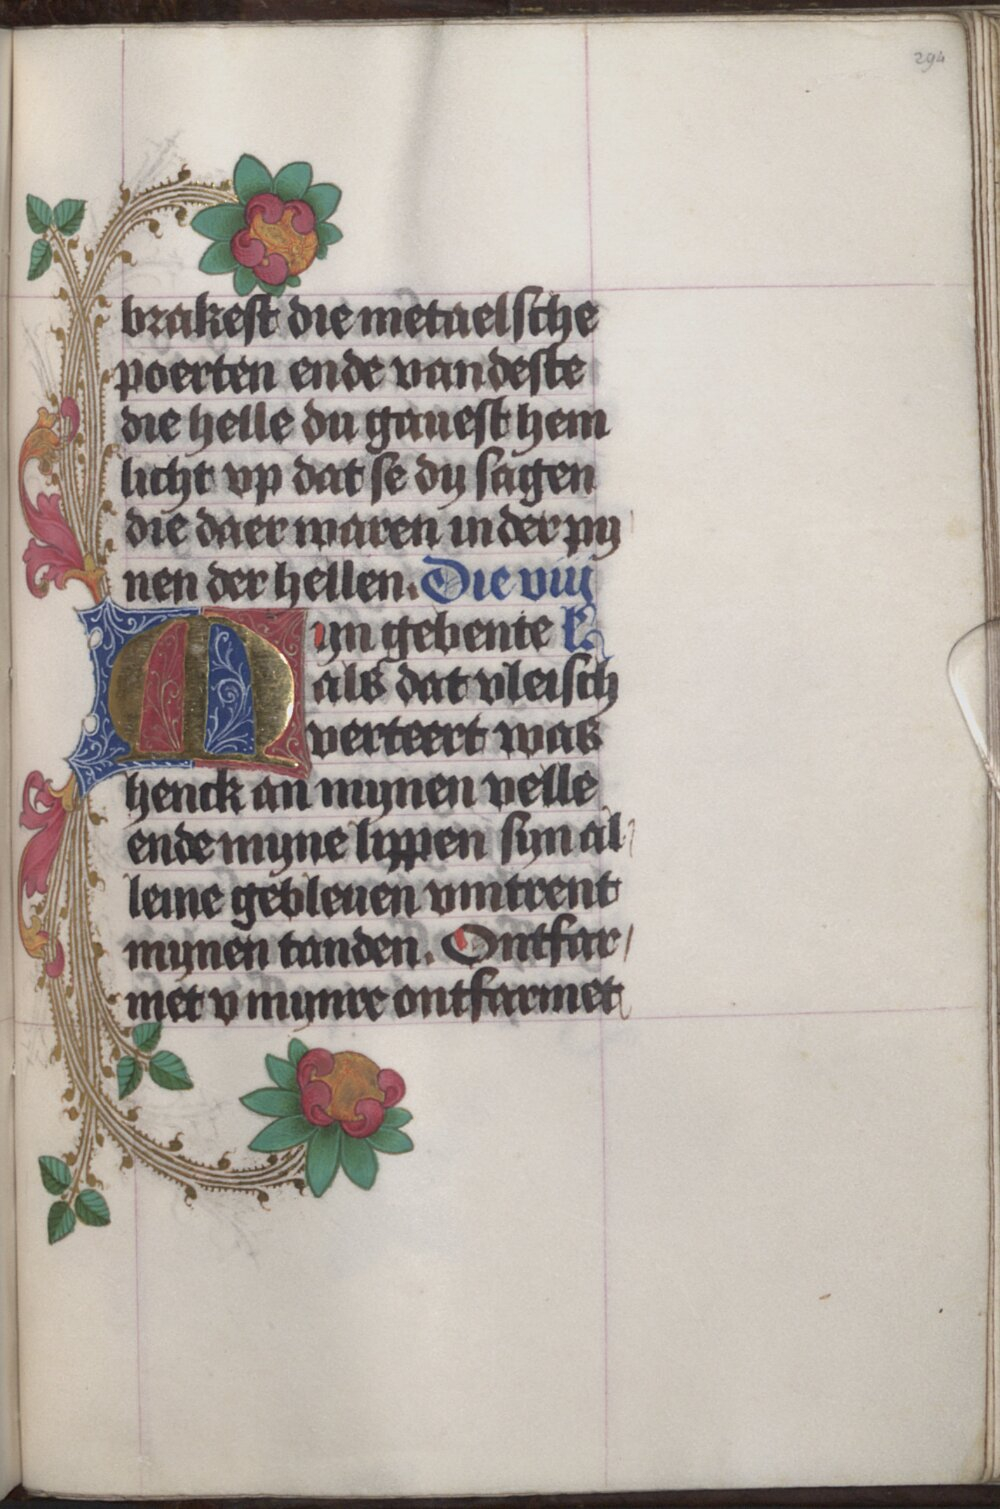 294
brakest die metaelsche
poerten ende vandeste
die helle du gauest hem
licht vp dat se dy sagen
die daer waren in der py
nen der hellen. Die viij
Myn gebente l
als dat vleisch
verteert was
henck an mynen velle
ende myne lippen syn al
leine gebleuen vmtrent
mynen tanden. Ontfar
met v mynre ontfarmet